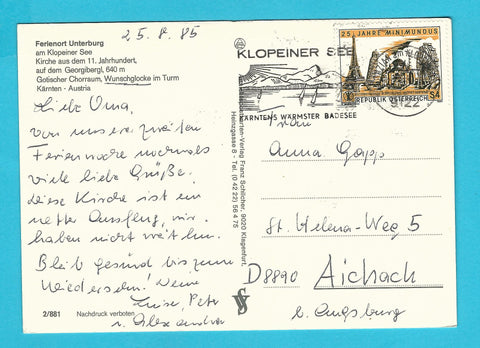 25.8.85
Ferienort Unterburg
am Klopeiner See
Kirche aus dem 11. Jahrhundert,
auf dem Georgibergl, 640 m
Gotischer Chorraum, Wunschglocke im Turm
Kärnten - Austria
Liebe Oma,
von unserer zweiten
Ferienwoche nochmals
viele liebe Grüße.
Diese Kirche ist ein
netter Ausflug, wir
haben nicht weit hin.
Bleib gesund bis zum
Wiedersehen! Deine
Luise, Peter
u. Alexandra
2/881 Nachdruck verboten
Karten-Verlag Franz Schilcher, 9020 Klagenfurt,
Heizgasse 8 - Tel. (0 42 22) 56 4 75
KLOPEINER SEE
KÄRNTENS WÄRMSTER BADESEE
25 JAHRE MINIMUNDUS
REPUBLIK ÖSTERREICH S4
9122
Frau
Anna Gapp
St. Helena-Weg 5
D8890 Aichach
b. Augsburg